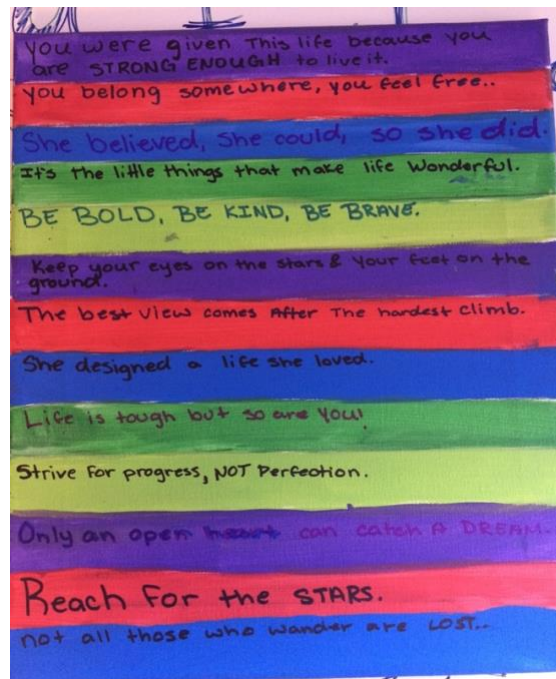 you were given This life because you
are STRONG ENOUGH to live it.
you belong somewhere, you feel free..
She believed, She could, so she did.
It's the little things that make life Wonderful.
BE BOLD, BE KIND, BE BRAVE.
Keep your eyes on the stars & your feet on the
ground.
The best view comes After The hardest climb.
She designed a life she loved.
Life is tough but so are You!
Strive for progress, NOT Perfection.
Only an open heart can catch A DREAM.
Reach For the STARS.
not all those who wander are LOST..